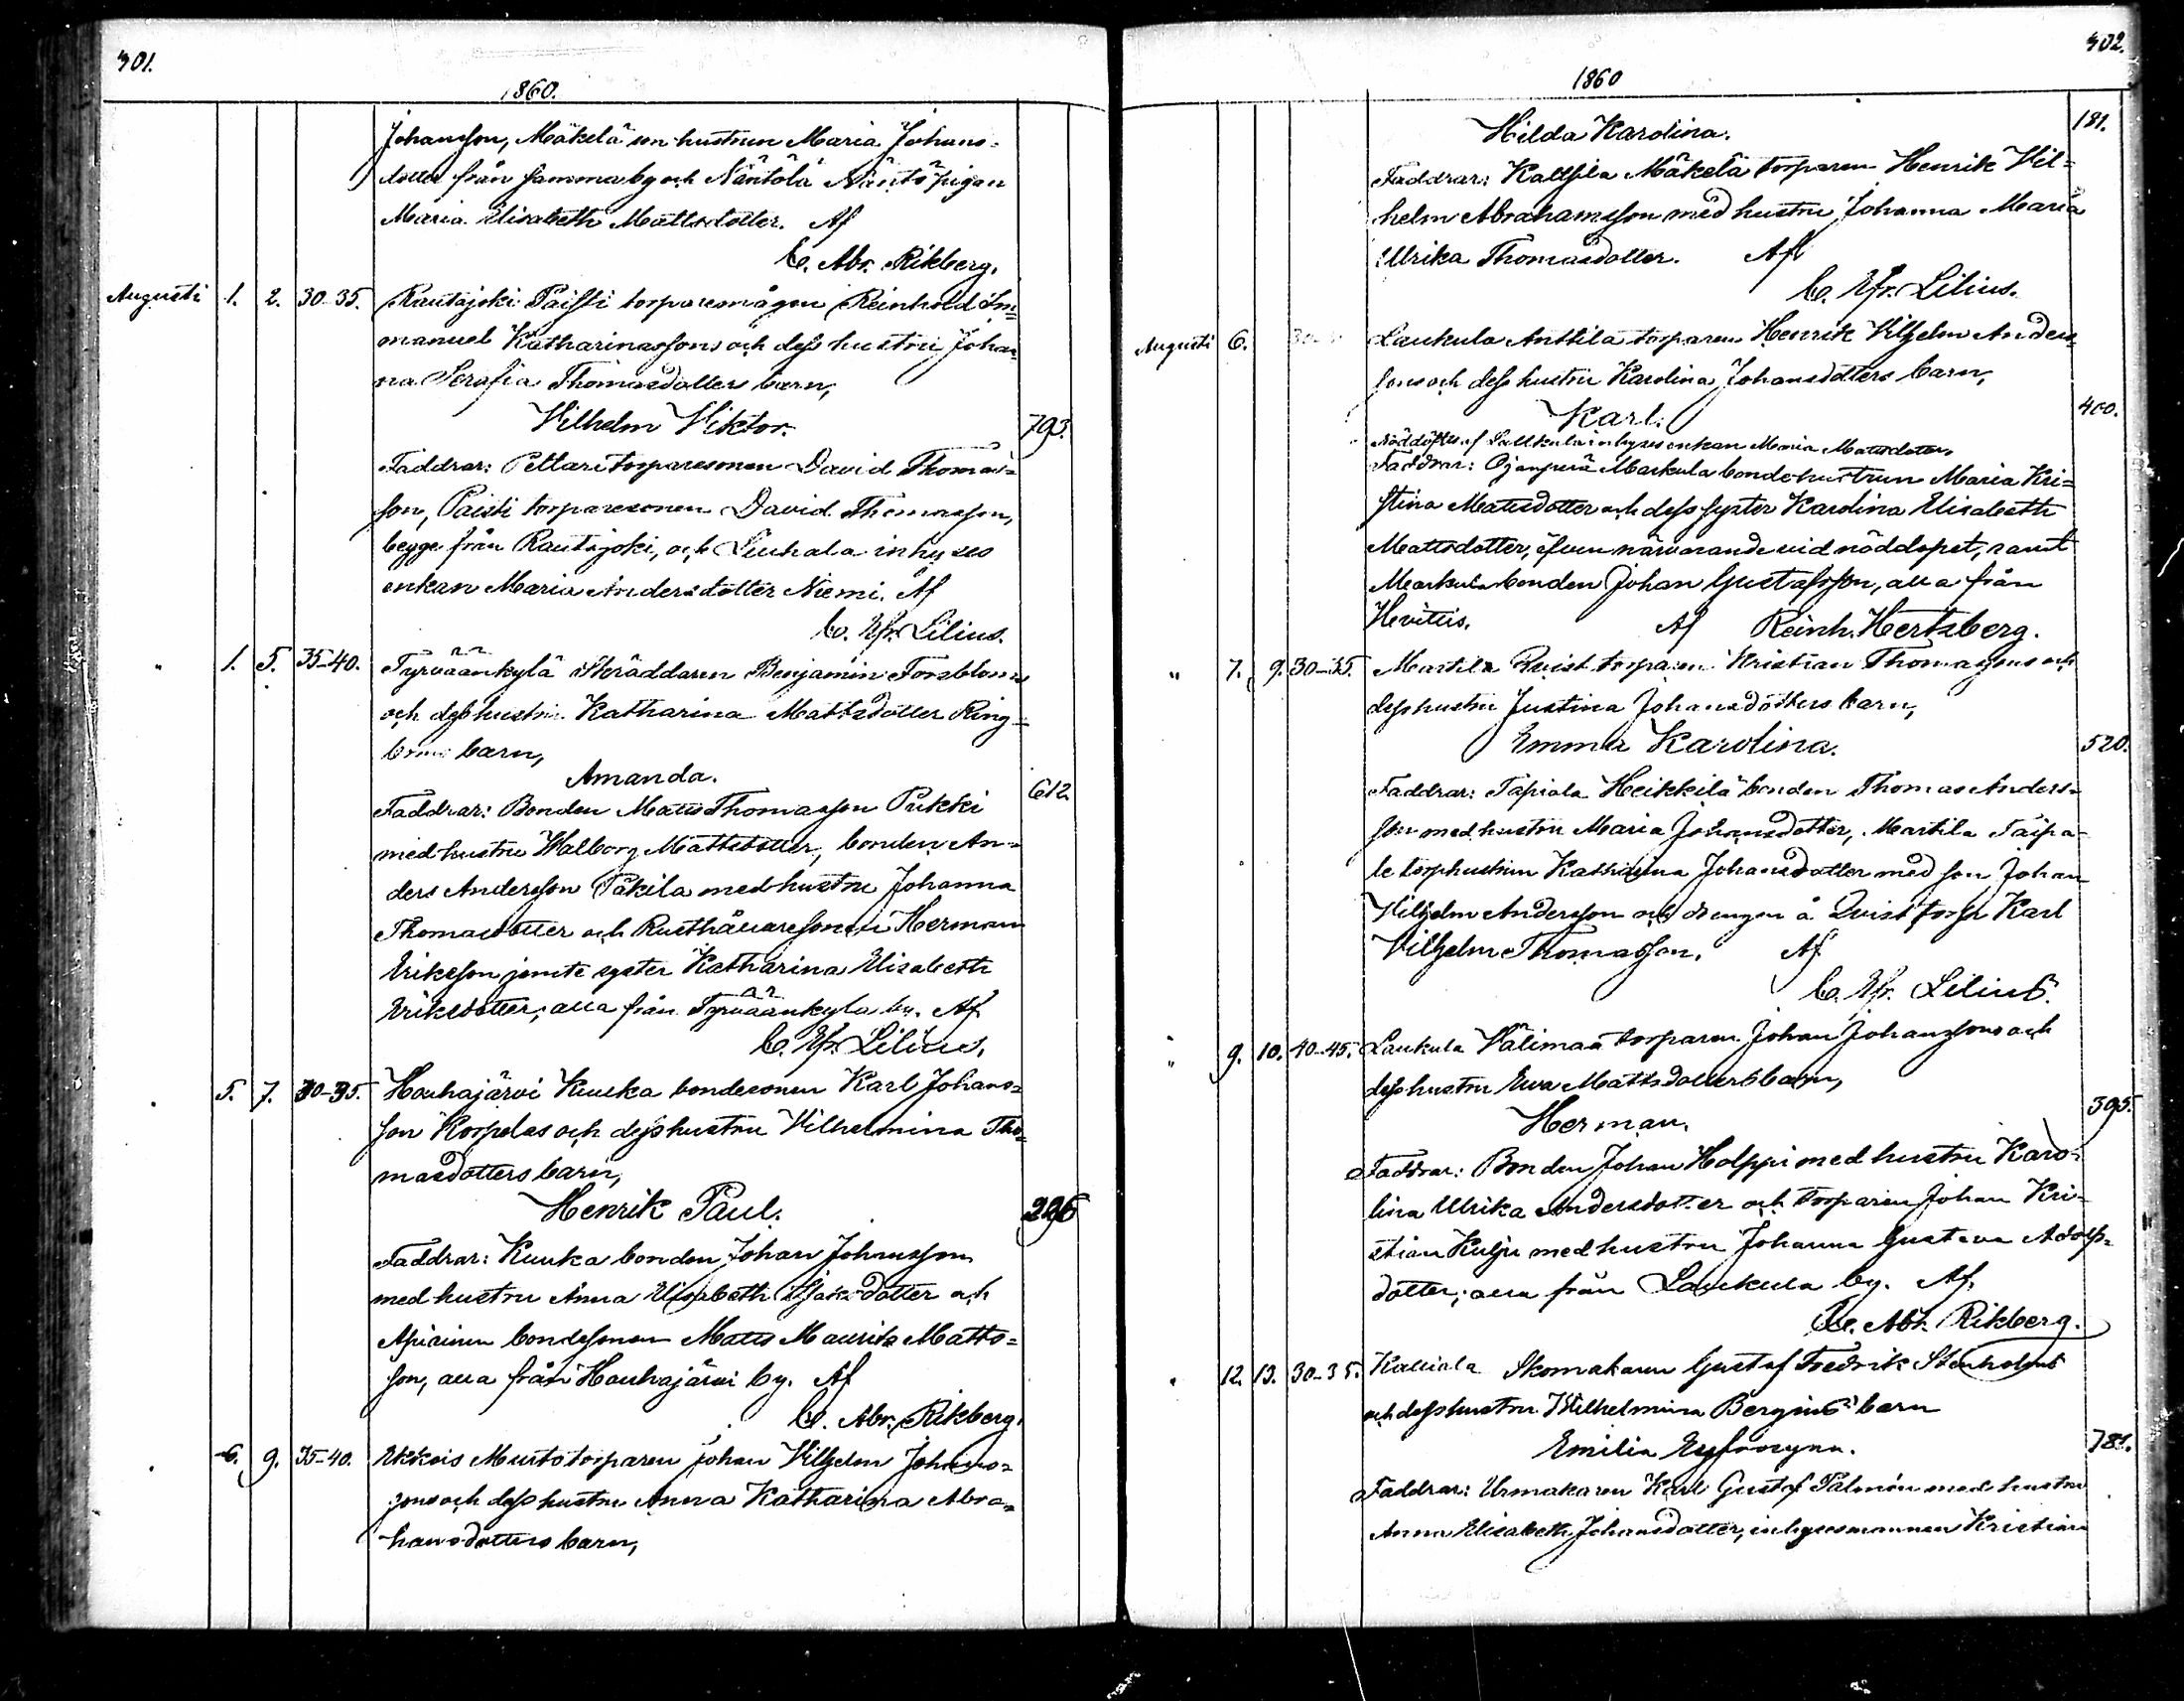 301.
1860.
Johansson, Mäkelä son hustrun Maria Johans=
dotter från samma by och Näntölä Näntö pigan
Maria Elisabeth Mattsdotter. Af
C. Abr. Rikberg.
Augusti 1. 2. 30-35. Rautajoki Paisti torparemågen Reinhold Im=
manuel Katharinassons och dess hustru Johan=
na Serafia Thomasdotters barn,
Vilhelm Viktor. 793.
Faddrar: Pettari torparesonen David Thomas=
son, Paisti torparesonen David Thomasson,
begge från Rautajoki, och Liuhala inhyses
enkan Maria Andersdotter Niemi. Af
C. Efr. Lilius.
" 1. 5. 35-40. Tyrväänkylä Skräddaren Benjamin Forsbloms
och dess hustru Katharina Mattsdotter Ring=
boms barn,
Amanda. 612.
Faddrar: Bonden Matts Thomasson Pukki
med hustru Walborg Mattsdotter, bonden An=
ders Andersson Päkilä med hustru Johanna
Thomasdotter och Rusthållaresonen Herman
Eriksson jemte syster Katharina Elisabeth
Eriksdotter, alla från Tyrväänkylä by. Af
C. Efr. Lilius.
" 5. 7. 30-35. Houhajärvi Kuuka bondesonen Karl Johans=
son Korpelas och dess hustru Vilhelmina Tho=
masdotters barn,
Henrik Paul. 296
Faddrar: Kuuka bonden Johan Johansson
med hustru Anna Elisabeth Isaksdotter och
bondesonen Matts Maurits Matts=
son, alla från Houhajärvi by. Af
C. Abr. Rikberg.
" 6. 9. 35-40. Ekkois Musto torparen Johan Vilhelm Johans=
sons och dess hustru Anna Katharina Abra=
hamsdotters barn,
302.
1860
Hilda Karolina. 181.
Faddrar: Kallsila Mäkelä torparen Henrik Vil=
helm Abrahamsson med hustru Johanna Maria
Ulrika Thomasdotter. Af
C. Efr. Lilius.
Augusti 6. Laukula Anttila torparen Henrik Vilhelm Anders=
sons och dess hustru Karolina Johansdotters barn,
Karl. 400.
Nöddöptes af inhyses enkan Maria Mattsdotter.
Faddrar: Ojanperä Markula bondehustrun Maria Kri=
stina Mattsdotter och dess syster Karolina Elisabeth
Mattsdotter, äfven närvarande vid nöddopet, samt
Markula bonden Johan Gustafsson, alla från
Hvittis. Af Reinh. Hertzberg.
" 7. 9. 30-35. Martila Qvist torparen Kristian Thomassons och
dess hustru Justina Johansdotters barn,
Emma Karolina. 520.
Faddrar: Tapiola Heikkilä bonden Thomas Anders=
son med hustru Maria Johansdotter, Martila Taipa=
le torphustrun Katharina Johansdotter med son Johan
Vilhelm Andersson och drengen å Qvist torp Karl
Vilhelm Thomasson. Af
C. Efr. Lilius.
" 9. 10. 40-45. Laukula Välimaa torparen Johan Johanssons och
dess hustru Eva Mattsdotters barn,
Herman. 395.
Faddrar: Bonden Johan Holppi med hustru Karo=
lina Ulrika Andersdotter och torparen Johan Kri=
stian Kulju med hustru Johanna Gustava Adolfs=
dotter, alla från Laukula by. Af
C. Abr. Rikberg.
" 12. 13. 30-35. Kalliala Skomakaren Gustaf Fredrik Stenholms
och dess hustru Wilhelmina Bergius' barn
Emilia Eufrosyna. 781.
Faddrar: Urmakaren Karl Gustaf Palmén med hustru
Anna Elisabeth Johansdotter, inhysesmannen Kristian